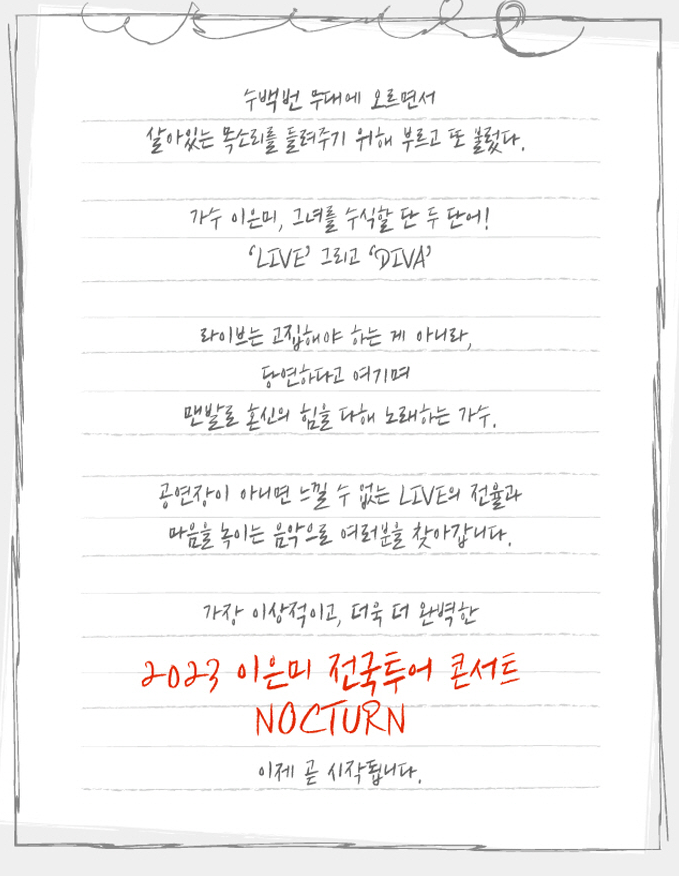 수백번 무대에 오르면서
살아있는 목소리를 들려주기 위해 부르고 또 불렀다.
가수 이은미, 그녀를 수식할 단 두 단어!
‘LIVE’ 그리고 ‘DIVA’
라이브는 고집해야 하는 게 아니라,
당연하다고 여기며
맨발로 혼신의 힘을 다해 노래하는 가수.
공연장이 아니면 느낄 수 없는 LIVE의 전율과
마음을 녹이는 음악으로 여러분을 찾아갑니다.
가장 이상적이고, 더욱 더 완벽한
2023 이은미 전국투어 콘서트
NOCTURN
이제 곧 시작됩니다.